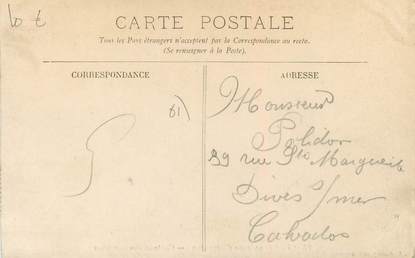 10 €
CARTE POSTALE
Tous les Pays étrangers n'acceptent pas la Correspondance au recto.
(Se renseigner à la Poste).
CORRESPONDANCE
ADRESSE
61)
Monsieur
Polidor
39 rue Ste Marguerite
Dives s/mer
Calvados